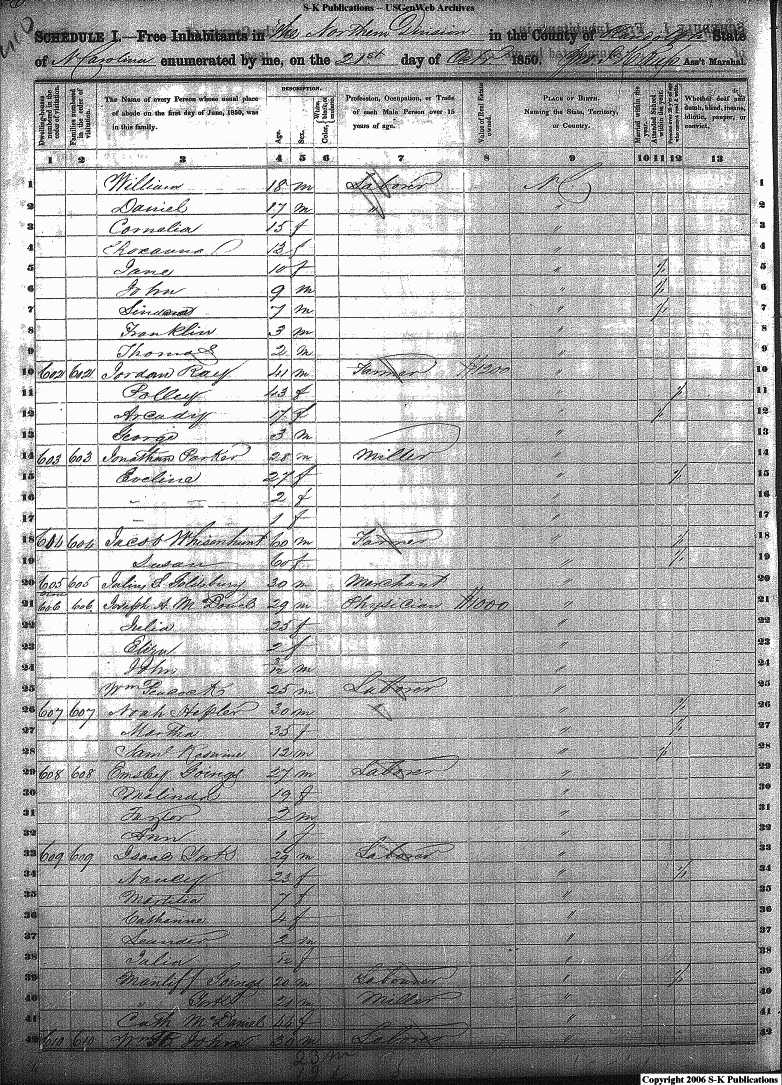 S-K Publications -- USGenWeb Archives
SCHEDULE I.—Free Inhabitants in The Northern Division in the County of State
of N Carolina enumerated by me, on the 21st day of Oct 1850. Ass't Marshal.
DESCRIPTION.
Dwelling-houses numbered in the order of visitation.
Families numbered in the order of visitation.
The Name of every Person whose usual place of abode on the first day of June, 1850, was in this family.
Age.
Sex.
Color, White, black, or mulatto.
Profession, Occupation, or Trade of each Male Person over 15 years of age.
Value of Real Estate owned.
PLACE OF BIRTH. Naming the State, Territory, or Country.
Married within the year.
Attended School within the year.
Persons over 20 y'rs of age who cannot read & write.
Whether deaf and dumb, blind, insane, idiotic, pauper, or convict.
1 2 3 4 5 6 7 8 9 10 11 12 13
1 William 18 m Laborer N C 1
2 Daniel 17 m " " 2
3 Cornelia 15 f " 3
4 13 f " 4
5 Jane 10 f " / 5
6 John 9 m " / 6
7 7 m " / 7
8 Franklin 3 m " 8
9 Thomas 2 m " 9
10 602 602 Jordan Ray 41 m Farmer $1200 " 10
11 Polley 43 f " / 11
12 17 f " / 12
13 George 3 m " 13
14 603 603 Jonathan Parker 28 m Miller " 14
15 Eveline 27 f " / 15
16 – – 2 f " 16
17 1 f " 17
18 604 604 Jacob Whisenhunt 60 m Farmer " / 18
19 Susan 60 f " / 19
20 605 605 30 m Merchant " 20
21 606 606 Joseph A. McDowel 29 m Physician $1000 " 21
22 Julia 25 f " 22
23 Eliza 2 f " 23
24 John m " 24
25 Wm Peacock 25 m Laborer " 25
26 607 607 Noah Hepler 30 m " / 26
27 Martha 35 f " / 27
28 Saml 12 m " / 28
29 608 608 Emsley Goings 27 m Laborer " 29
30 Malinda 19 f " 30
31 2 m " 31
32 Ann 1 f " 32
33 609 609 Isaac York 29 m Laborer " 33
34 Nancy 23 f " / 34
35 7 f " 35
36 Catharine 4 f " 36
37 Leander 2 m " 37
38 Julia f " 38
39 Goings 20 m Labourer " / 39
40 " York 21 m Miller " 40
41 Cath McDaniel 44 f " 41
42 610 610 John 30 m Laborer " 42
Copyright 2006 S-K Publications